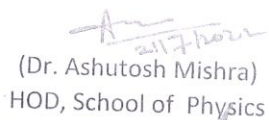 21/7/2022
(Dr. Ashutosh Mishra)
HOD, School of Physics